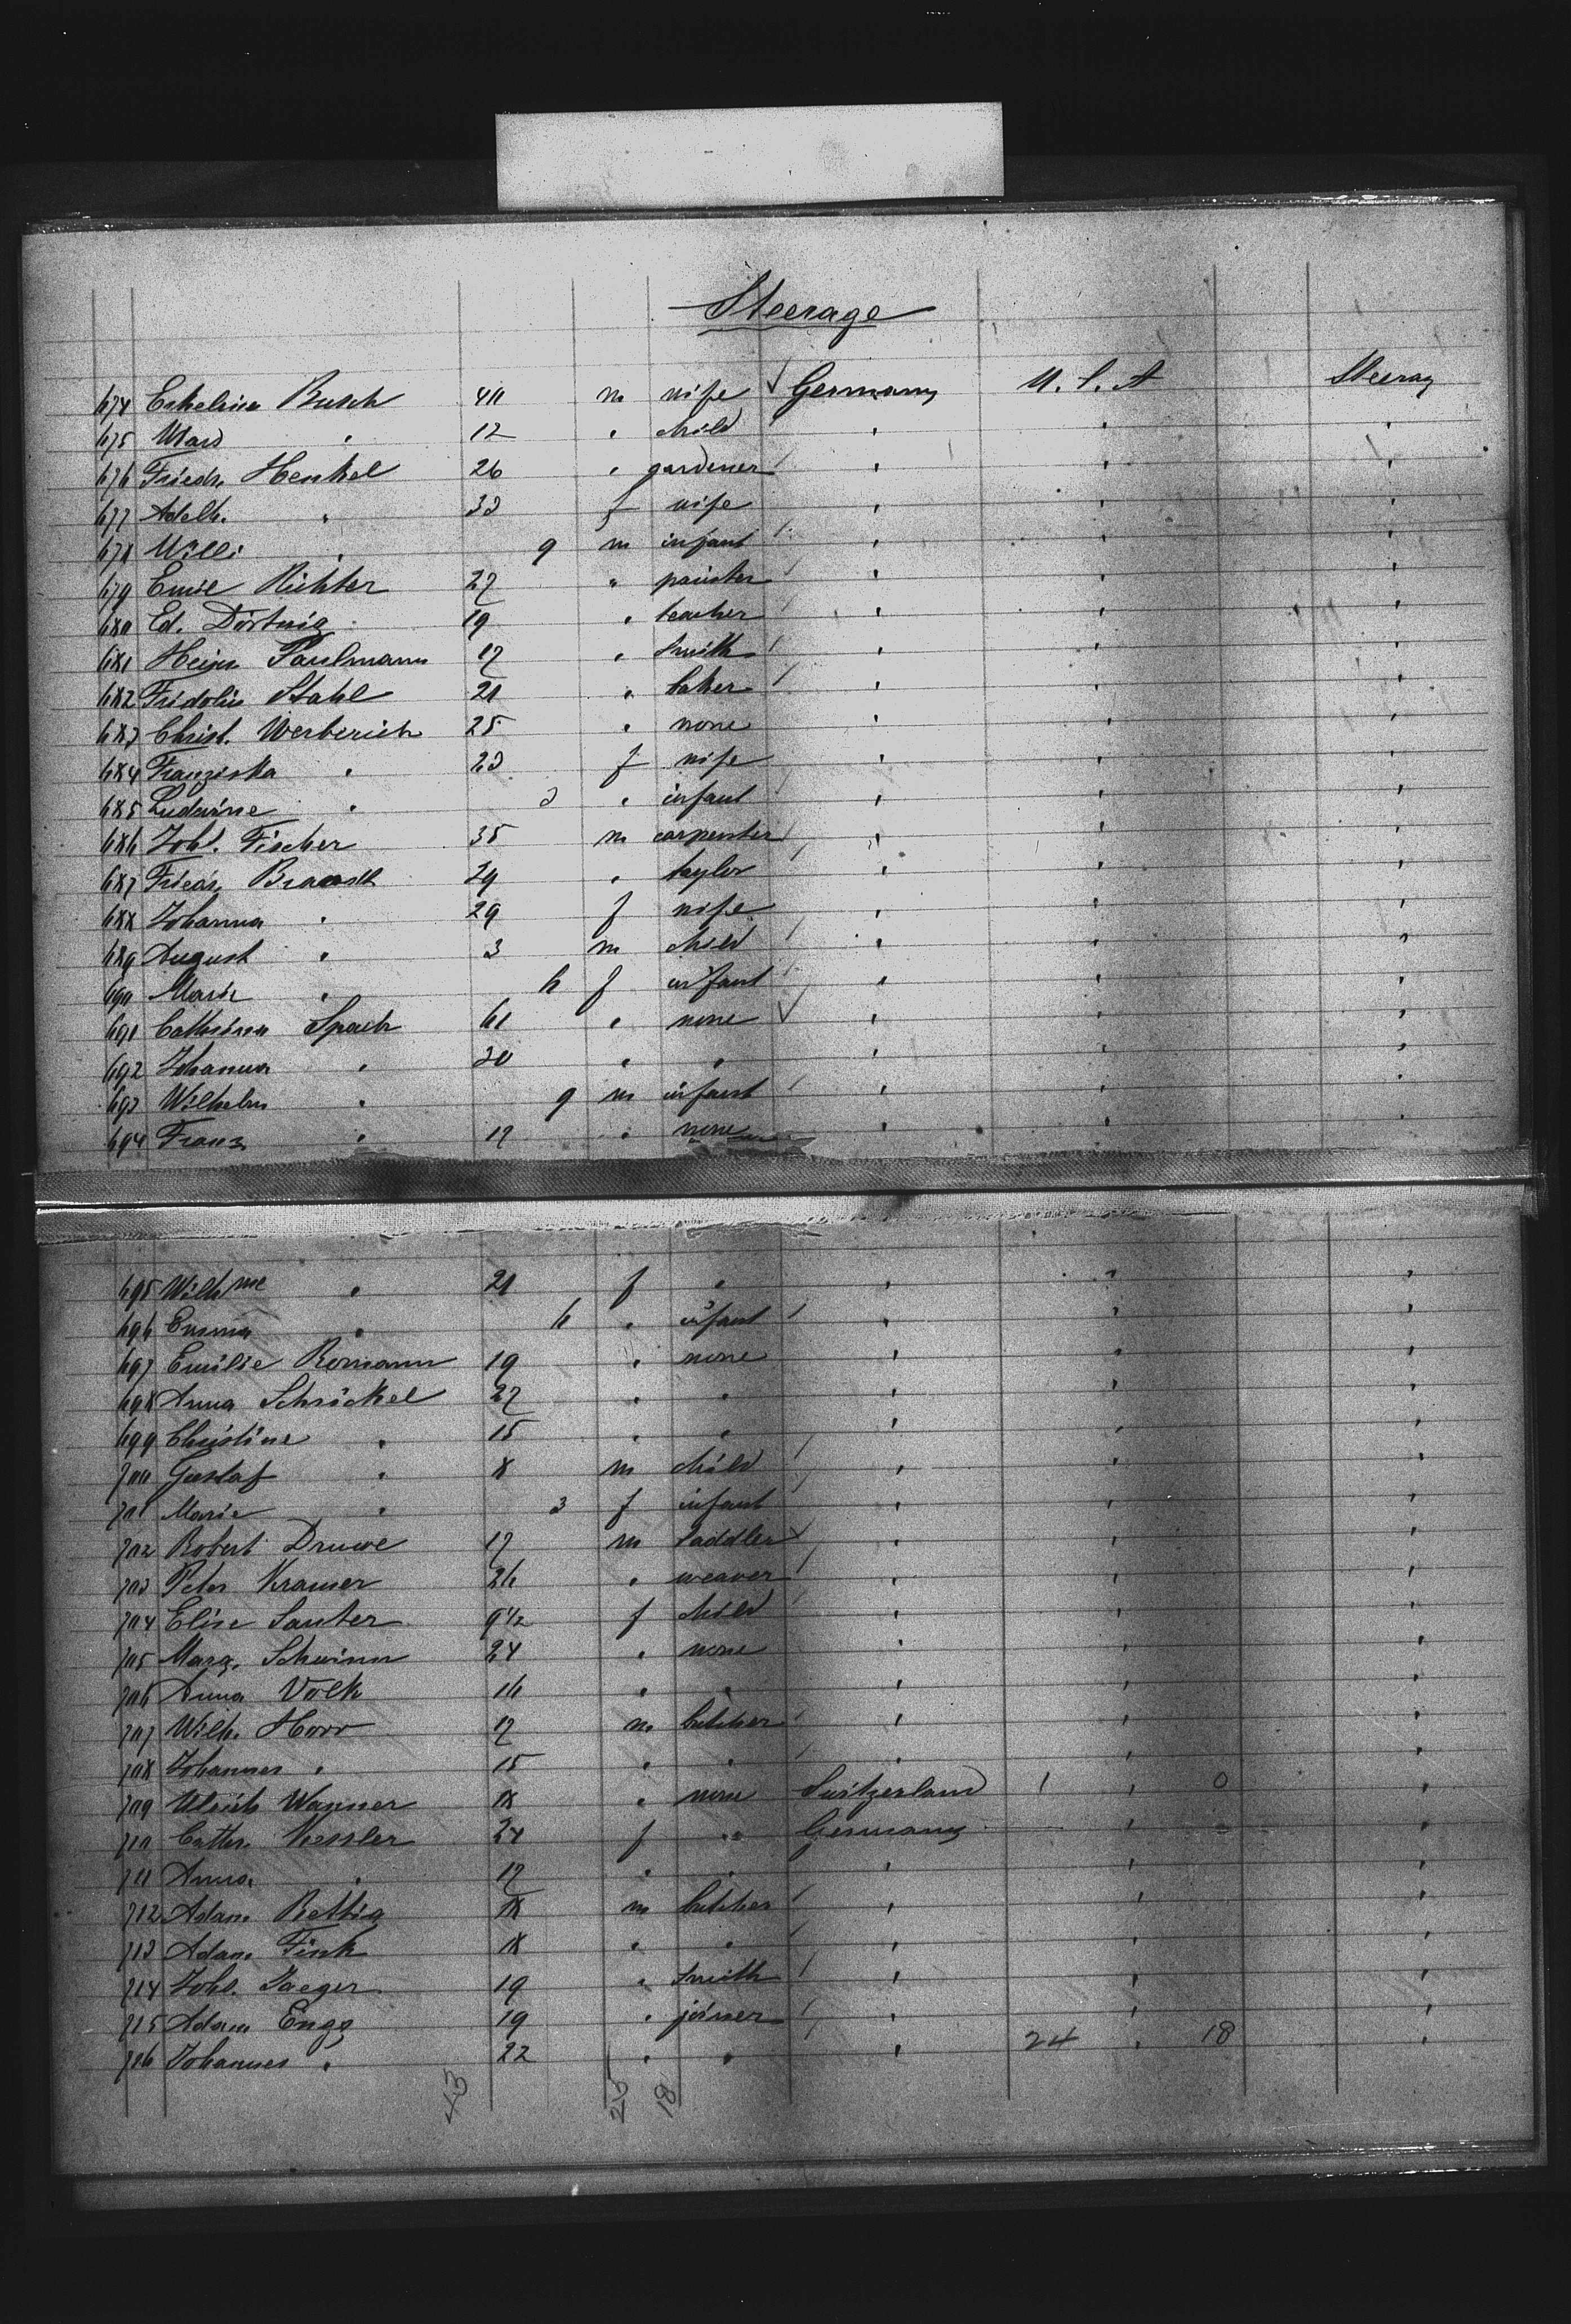 Steerage
674 Eskeline Busch 40 m wife √ Germany U. S. A Steerag
675 Ward " 12 " child " " "
676 Friedr. Henkel 26 " gardener / " " "
677 Adelh. " 33 f wife " " "
678 Willi " 9 m infant / " " "
679 Emil Richter 27 " painter / " " "
680 Ed. 19 " teacher / " " "
681 Heinr Paulmann 17 " Smith / " " "
682 Fridolin Stahl 21 " baker / " " "
683 Christ. Werberich 25 " none " " "
684 Franziska " 23 f wife " " "
685 Ludwine " 3 " infant / " " "
686 Joh. Fischer 35 m carpenter / " " "
687 Friedr. Brandt 29 " taylor / " " "
688 Johanna " 29 f wife " " "
689 August " 3 m child / " " "
690 Marie " 6 f infant / " " "
691 Cathrina Spaeh 61 " none √ " " "
692 Johanna " 30 " " " " "
693 Wilhelm " 9 m infant / " " "
694 Franz " 17 " none " " "
695 Wilhme " 21 f " " " "
696 Emma " 6 " infant / " " "
697 Emilie Romann 19 " none " " "
698 Anna Schrickel 27 " " " " "
699 Christine " 15 " " " " "
700 Gustaf " 8 m child / " " "
701 Marie " 3 f infant / " " "
702 Robert Druwe 17 m Saddler √ " " "
703 Peter Kramer 26 " weaver / " " "
704 Elise Sauter 9½ f child / " " "
705 Marg. Schwinn 24 " none " " "
706 Anna Volk 16 " " " " "
707 Wilh. Horr 17 m butcher / " " "
708 Johannes " 15 " " / " " "
709 Ulrich Wanner 18 " none Switzerland 1 " 0 "
710 Cath. Kessler 24 f " Germany " "
711 Anna " 17 " " " " "
712 Adam Rettig 18 m butcher / " " "
713 Adam Fink 18 " " / " " "
714 Joh. Jaeger 19 " Smith / " " "
715 Adam Engg 19 " joiner / " " "
716 Johannes " 22 " " " 24 " 18 "
43 25 18